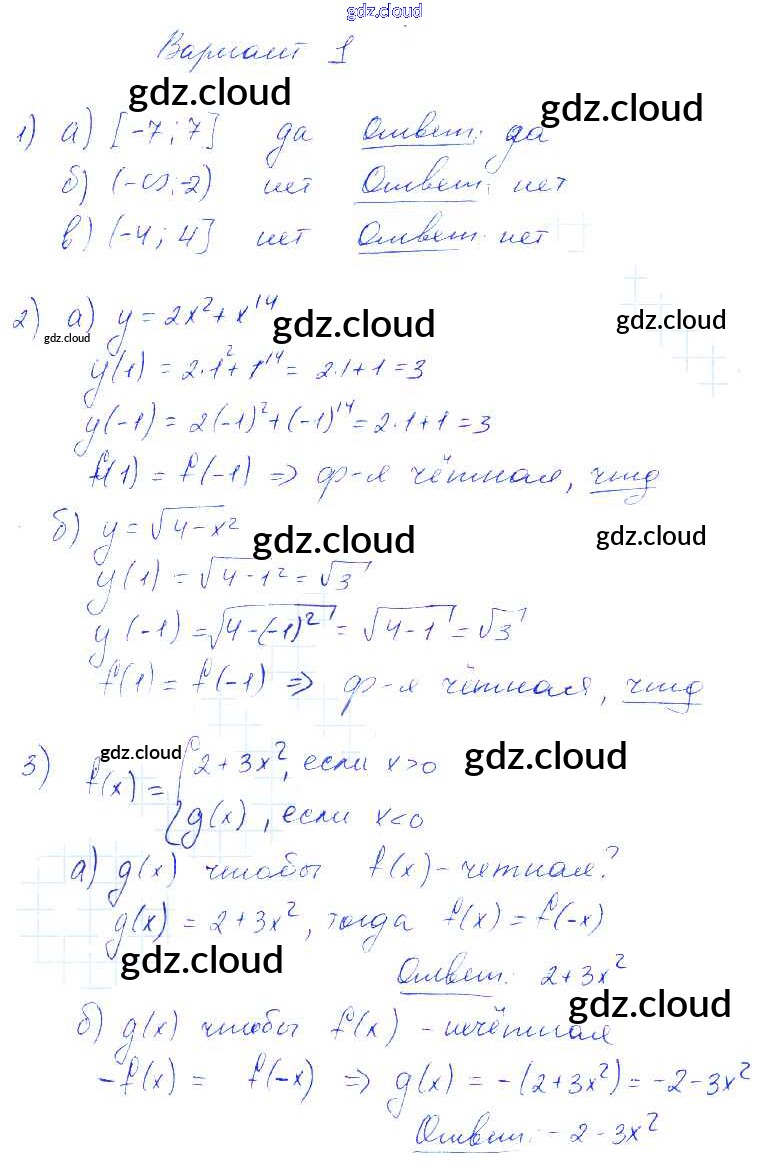 gdz.cloud
Вариант 1
gdz.cloud gdz.cloud
1) а) [-7; 7] да Ответ: да
б) (-∞; -2) нет Ответ: нет
в) (-4; 4] нет Ответ: нет
2) а) y = 2x² + x¹⁴
gdz.cloud gdz.cloud gdz.cloud
y(1) = 2·1² + 1¹⁴ = 2·1+1 = 3
y(-1) = 2(-1)² + (-1)¹⁴ = 2·1+1 = 3
f(1) = f(-1) => ф-я чётная, чтд
б) y = √4-x²
gdz.cloud gdz.cloud
y(1) = √4-1² = √3
y(-1) = √4-(-1)² = √4-1 = √3
f(1) = f(-1) => ф-я чётная, чтд
gdz.cloud gdz.cloud
3) f(x) = { 2 + 3x², если x>0
g(x), если x<0
а) g(x) чтобы f(x) - четная?
g(x) = 2+3x², тогда f(x) = f(-x)
gdz.cloud
Ответ: 2+3x²
gdz.cloud
б) g(x) чтобы f(x) - нечётная
-f(x) = f(-x) => g(x) = -(2+3x²) = -2-3x²
Ответ: -2-3x²